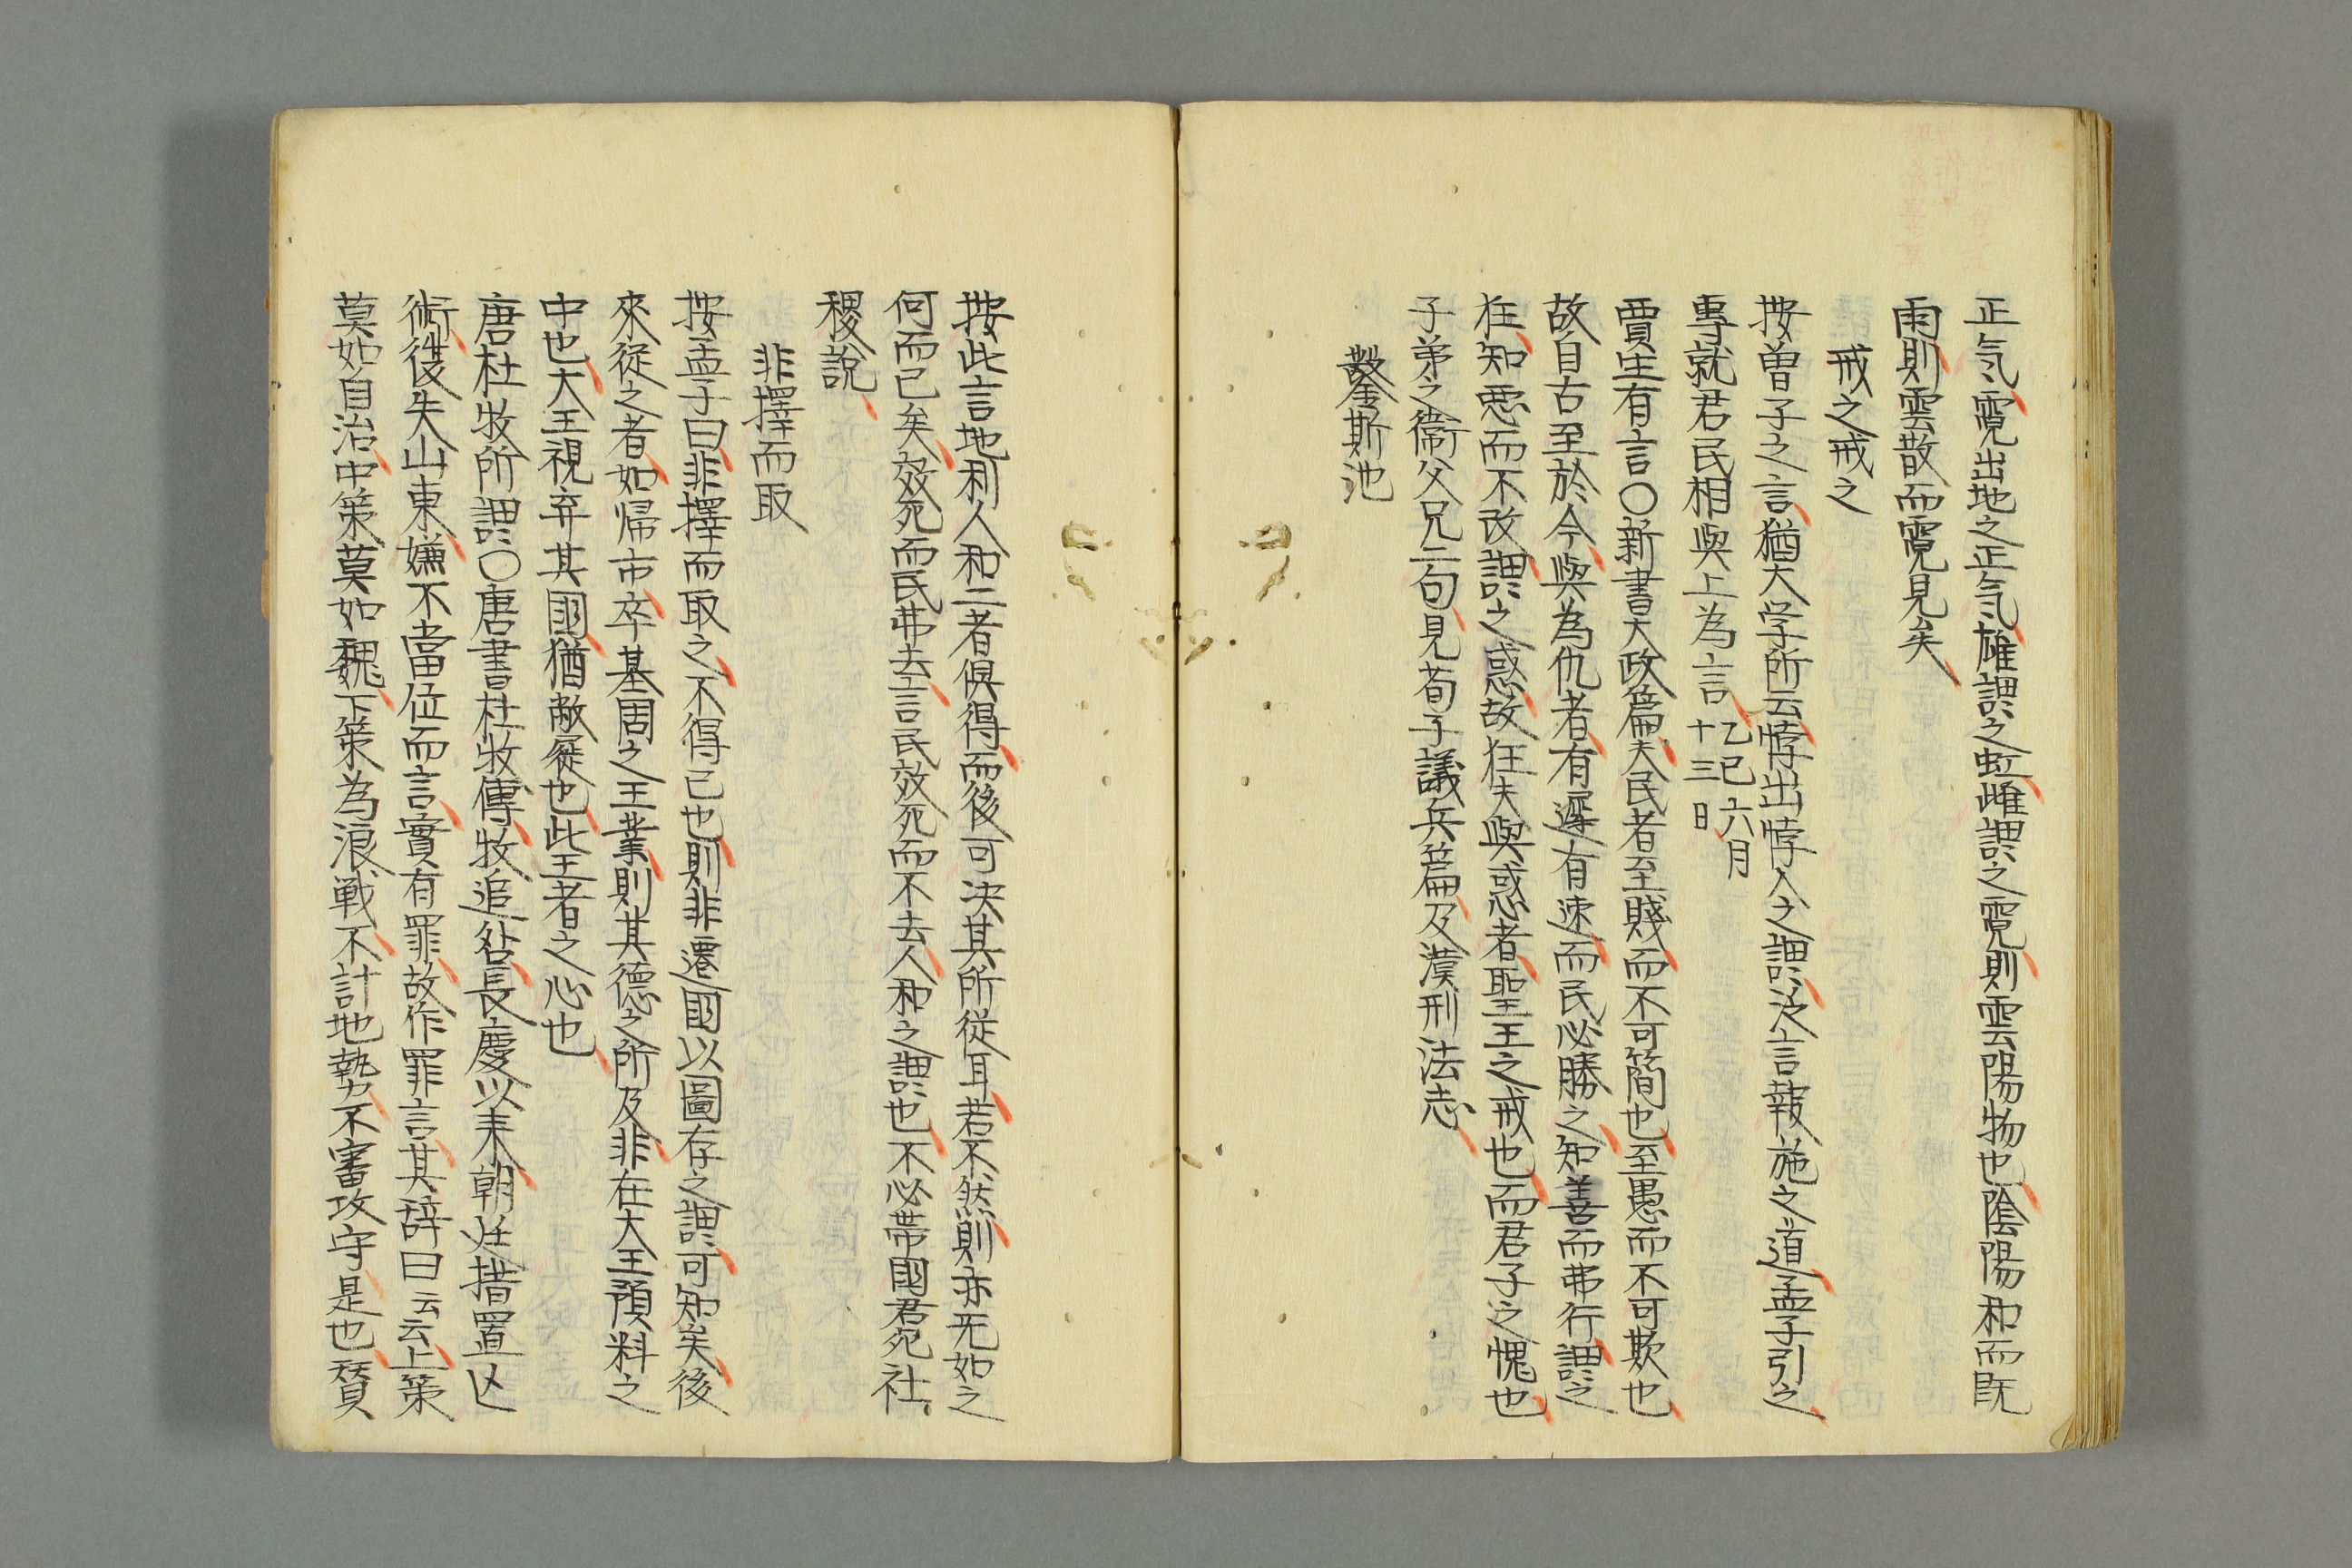 正気霓出地之正気雄謂之虹雌謂之霓則雲陽物也陰陽和而既
雨則雲散而霓見矣
戒之戒之
按曽子之言猶大学所云悖出悖入之謂泛言報施之道孟子引之
專就君民相與上為言乙巳六月
十三日
賈生有言〇新書大政篇夫民者至賤而不可簡也至愚而不可欺也
故自古至於今與為仇者有遲有速而民必勝之知善而弗行謂之
狂知惡而不改謂之惑故狂夫與惑者聖王之戒也而君子之愧也
子弟之衞父兄二句見荀子議兵篇及漢刑法志
鑿斯池
按此言地利人和二者俱得而後可决其所從耳若不然則亦无如之
何而已矣效死而民弗去言民效死而不去人和之謂也不必帯國君死社
稷說
非擇而取
按孟子曰非擇而取之不得已也則非遷國以圖存之謂可知矣後
來從之者如帰市卒基周之王業則其德之所及非在大王預料之
中也大王視弃其國猶敝屣也此王者之心也
唐杜牧所謂〇唐書杜牧傳牧追咎長慶以来朝廷措置亾
術復失山東嫌不當位而言實有罪故作罪言其辞曰云云上策
莫如自治中策莫如魏下策為浪戦不計地勢不審攻守是也賛